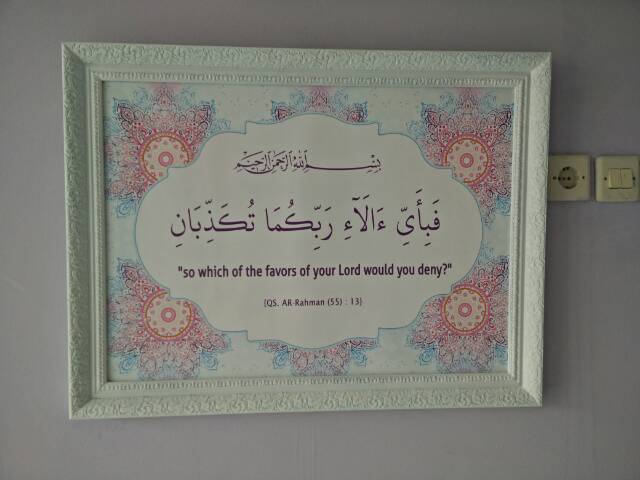 بِسْمِ اللهِ الرَّحْمٰنِ الرَّحِيْمِ
فَبِأَيِّ ءَالَآءِ رَبِّكُمَا تُكَذِّبَانِ
"so which of the favors of your Lord would you deny?"
{QS. AR-Rahman (55) : 13}